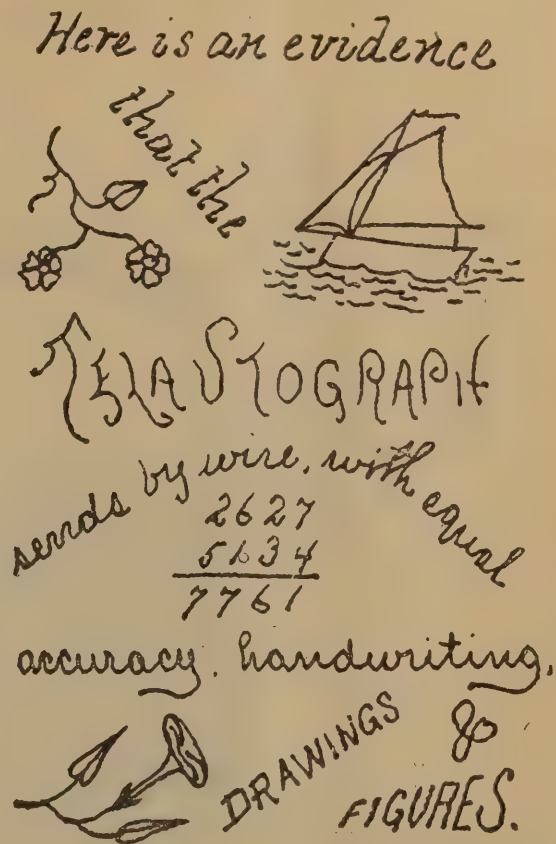 Here is an evidence
that the
TELASTOGRAPH
sends by wire, with equal
2627
5134
7761
accuracy, handwriting,
DRAWINGS &
FIGURES.